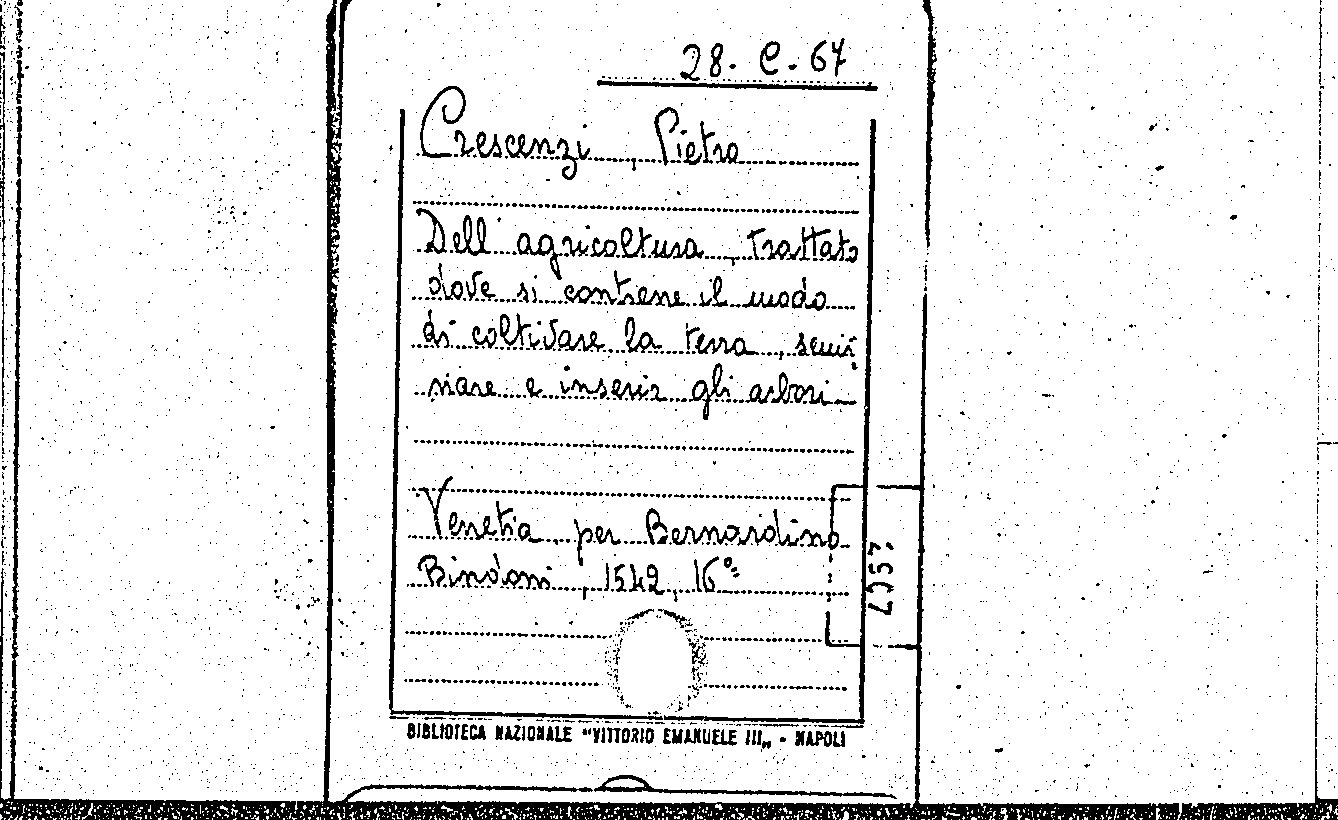 28. C. 67
Crescenzi, Pietro
Dell'agricoltura, trattato
dove si contiene il modo
di coltivare la terra, semi
nare e inserir gli arbori
Venetia, per Bernardino
Bindoni, 1542, 16°
BIBLIOTECA NAZIONALE "VITTORIO EMANUELE III„ - NAPOLI